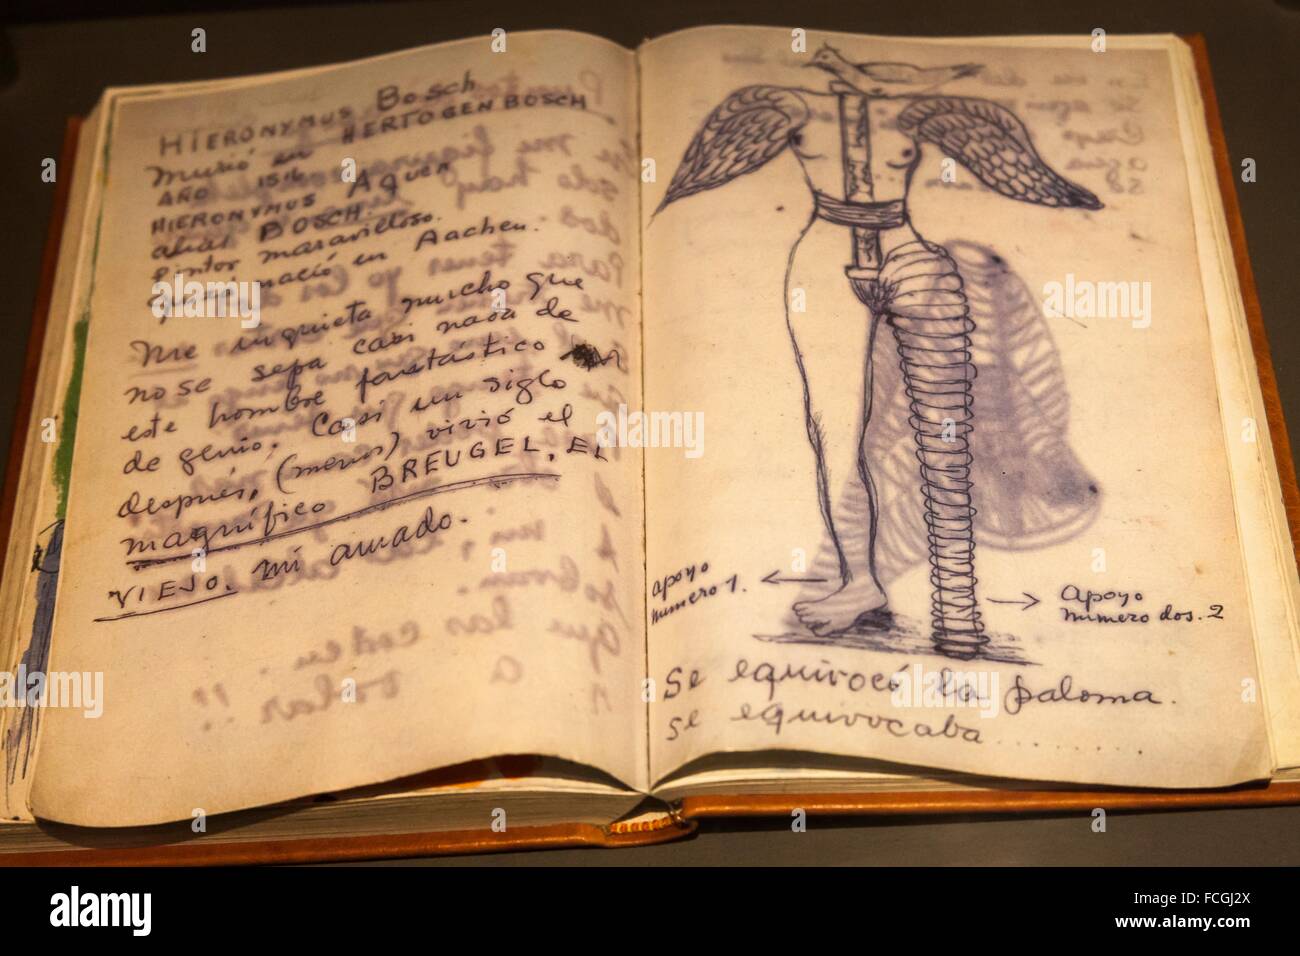 HIERONYMUS BOSCH
Murió en HERTOGENBOSCH
AÑO 1516
HIERONYMUS AQUEN
alias BOSCH.
pintor maravilloso.
quizá nació en Aachen.
Me inquieta mucho que
no se sepa casi nada de
este hombre fantástico
de genio. Casi un siglo
después, (menos) vivió el
magnífico BREUGEL, EL
VIEJO. mi amado.
apoyo
numero 1.
apoyo
numero dos. 2
Se equivocó la paloma.
se equivocaba.........
alamy
Image ID: FCGJ2X
www.alamy.com